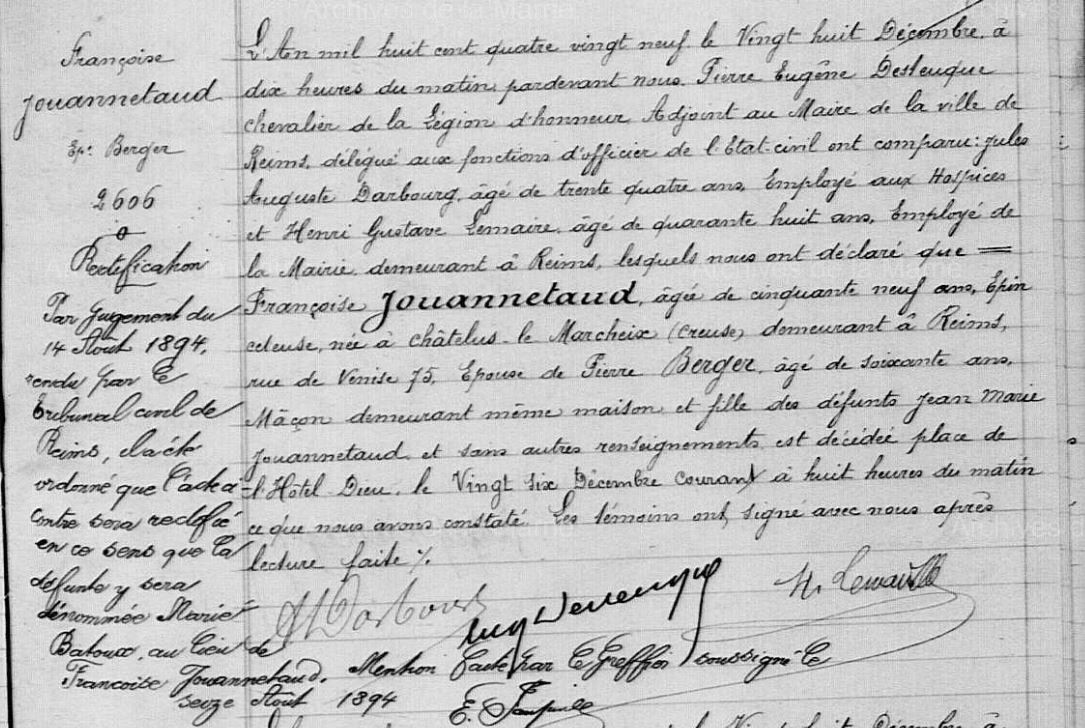 Archives de la Marne
Françoise
Jouannetaud
Epe Berger
2606
Rectification
Par Jugement du
14 Août 1894,
rendu par le
Tribunal civil de
Reims, il a été
ordonné que l'acte ci-
contre sera rectifié
en ce sens que la
défunte y sera
dénommée Marie
Batoux, au lieu de
Françoise Jouannetaud. Mention faite par le Greffier soussigné le
seize Août 1894
L'An mil huit cent quatre vingt neuf le Vingt huit Décembre, à
dix heures du matin, pardevant nous, Pierre Eugène Desteuque
chevalier de la Légion d'honneur, Adjoint au Maire de la ville de
Reims, délégué aux fonctions d'officier de l'Etat-civil ont comparu: Jules
Auguste Darbourg, âgé de trente quatre ans, Employé aux Hospices
et Henri Gustave Lemaire, âgé de quarante huit ans, Employé de
la Mairie, demeurant à Reims, lesquels nous ont déclaré que =
Françoise Jouannetaud, âgée de cinquante neuf ans, Epin
celeuse, née à Châtelus-le Marcheix (Creuse) demeurant à Reims,
rue de Venise 75, Epouse de Pierre Berger, âgé de soixante ans,
Mâçon demeurant même maison, et fille des défunts Jean Marie
Jouannetaud et sans autres renseignements est décédée place de
l'Hôtel-Dieu, le Vingt six Décembre courant à huit heures du matin
ce que nous avons constaté. Les témoins ont signé avec nous après
lecture faite %.